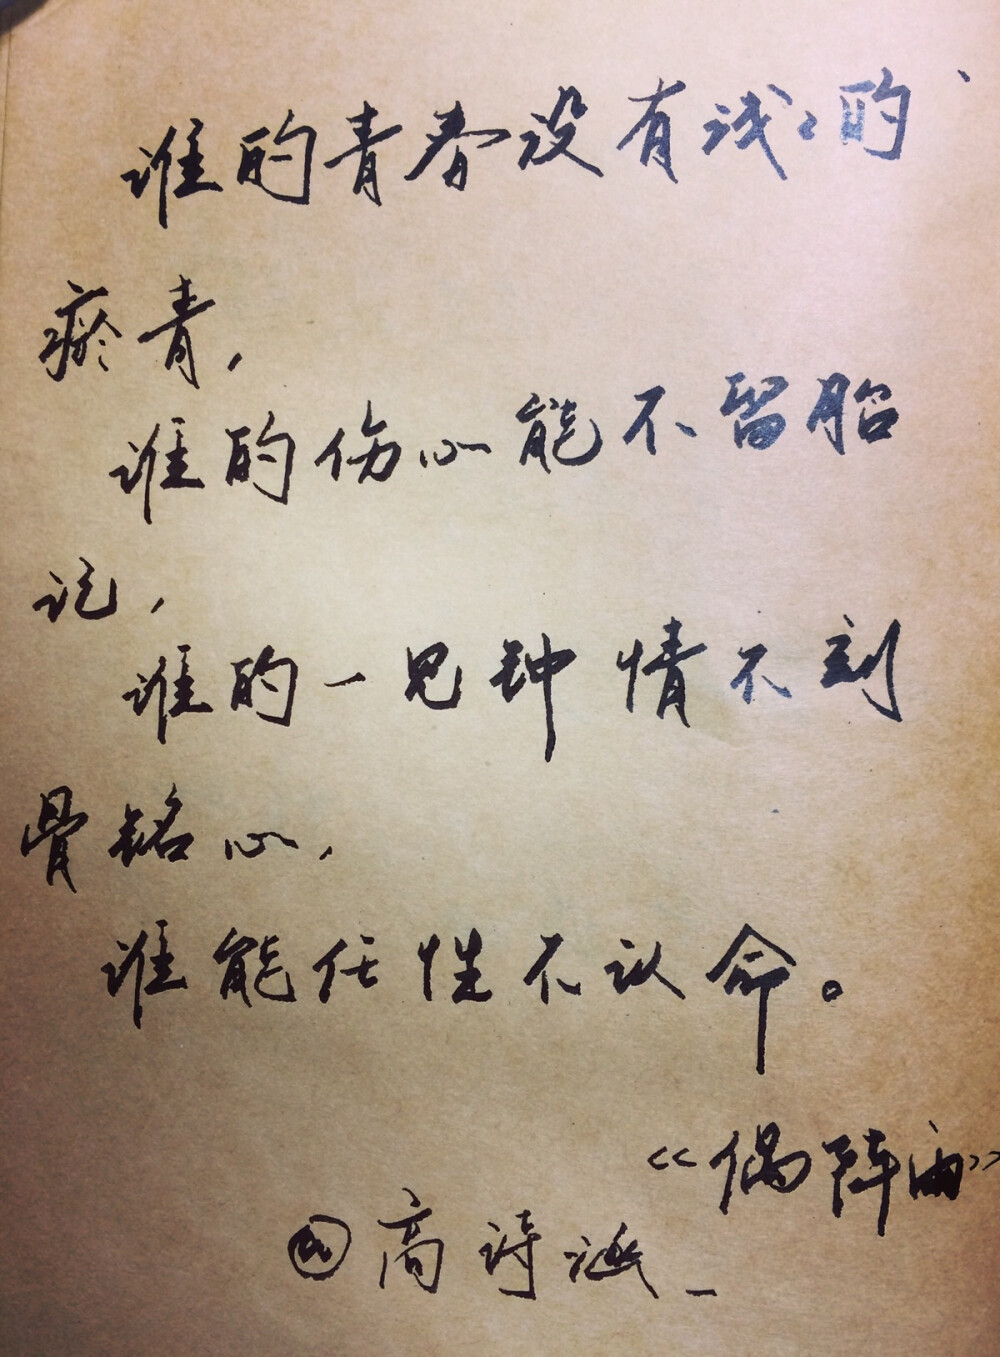 谁的青春没有浅〻的
瘀青，
谁的伤心能不留胎
记，
谁的一见钟情不刻
骨铭心，
谁能任性不认命。
<<偶阵雨>>
@高诗涵_